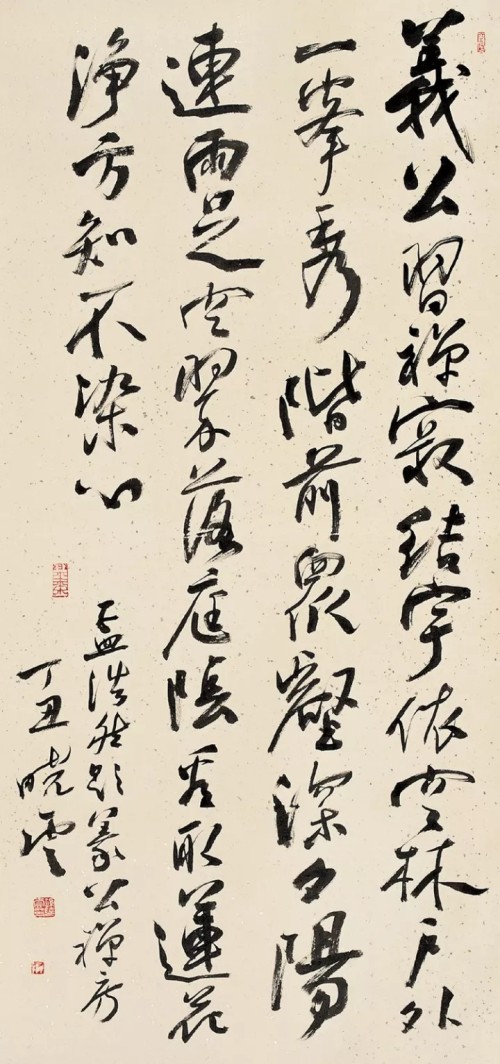 義公習禪寂結宇依空林戶外
一峯秀階前眾壑深夕陽
連雨足空翠落庭陰看取蓮花
淨方知不染心
孟浩然題義公禪房
丁丑曉雲